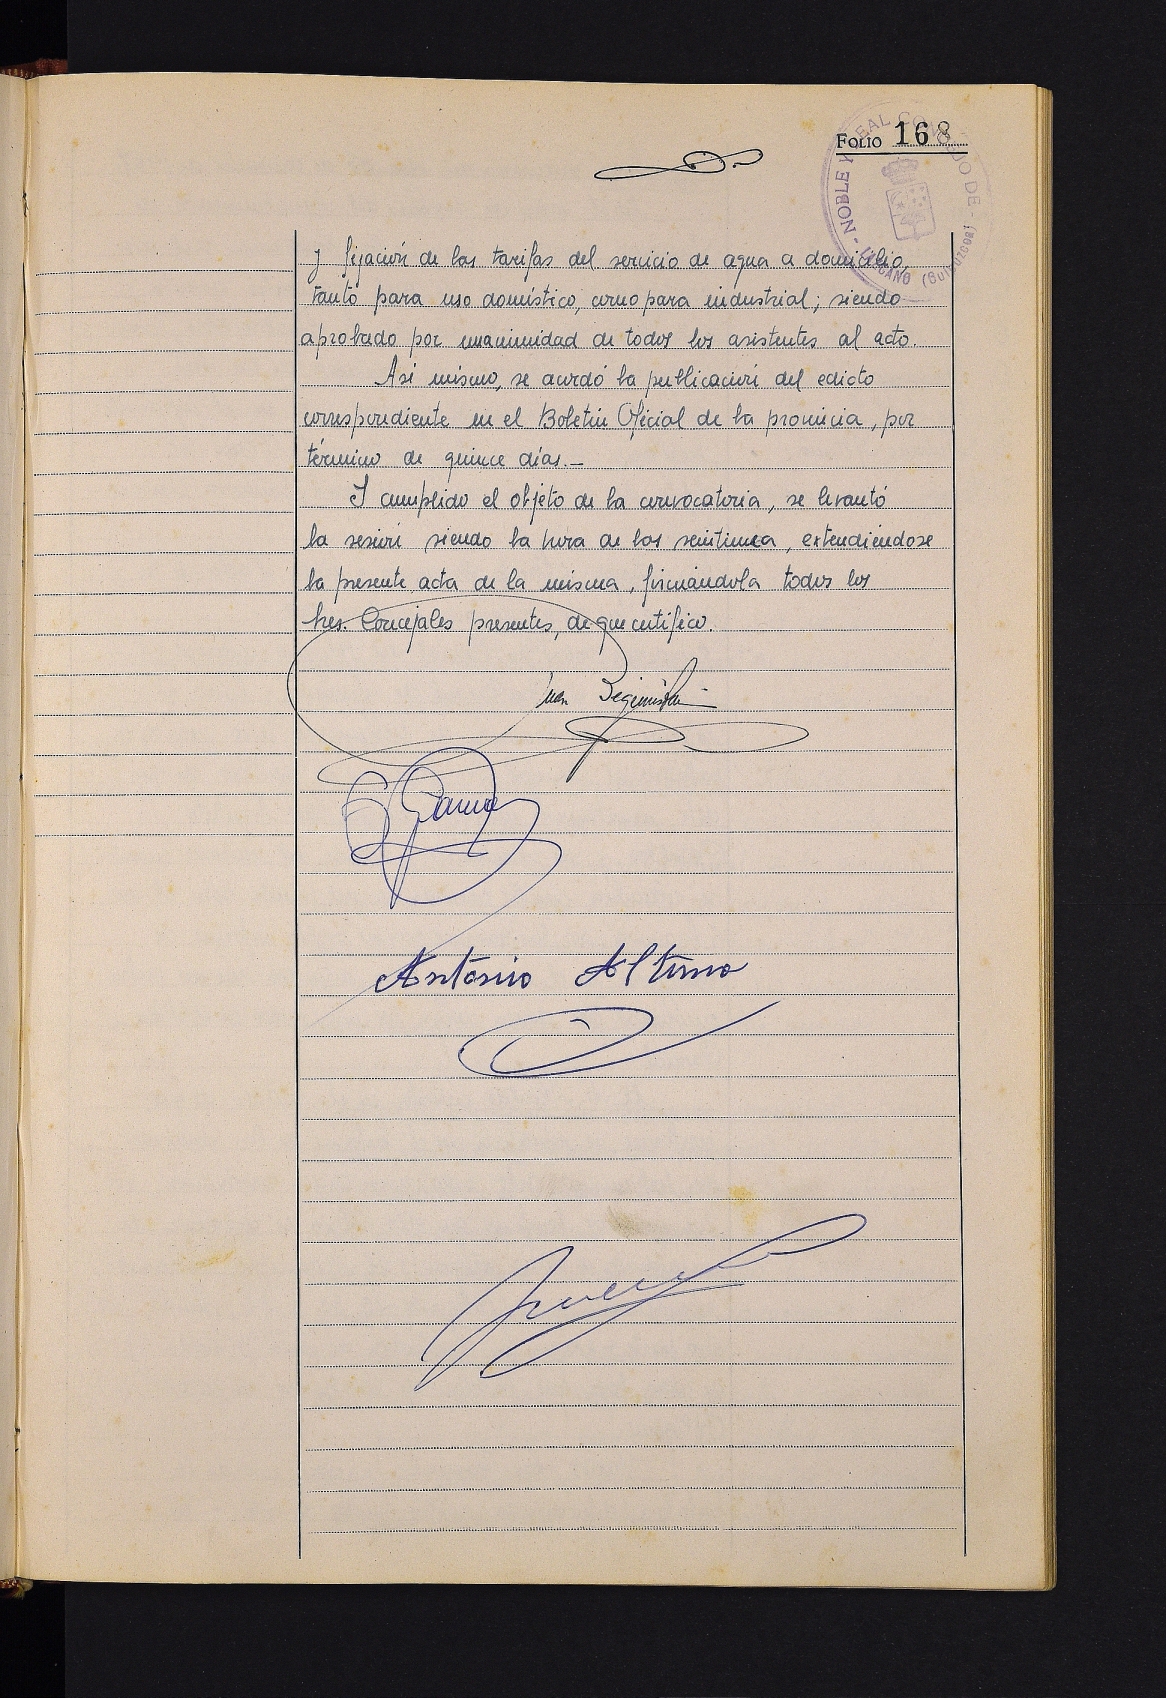 FOLIO 168
NOBLE Y LEAL CONCEJO DE - LAZCANO (Guipuzcoa) -
y fijación de las tarifas del servicio de agua a domicilio,
tanto para uso doméstico, como para industrial; siendo
aprobado por unanimidad de todos los asistentes al acto.
Asi mismo, se acordó la publicación del edicto
correspondiente en el Boletin Oficial de la provincia, por
término de quince días.-
Y cumplido el objeto de la convocatoria, se levantó
la sesión siendo la hora de las veintiuna, extendiéndose
la presente acta de la misma, firmándola todos los
Sres. Concejales presentes, de que certifico.
Juan Beguiristain
Antonio Altuna